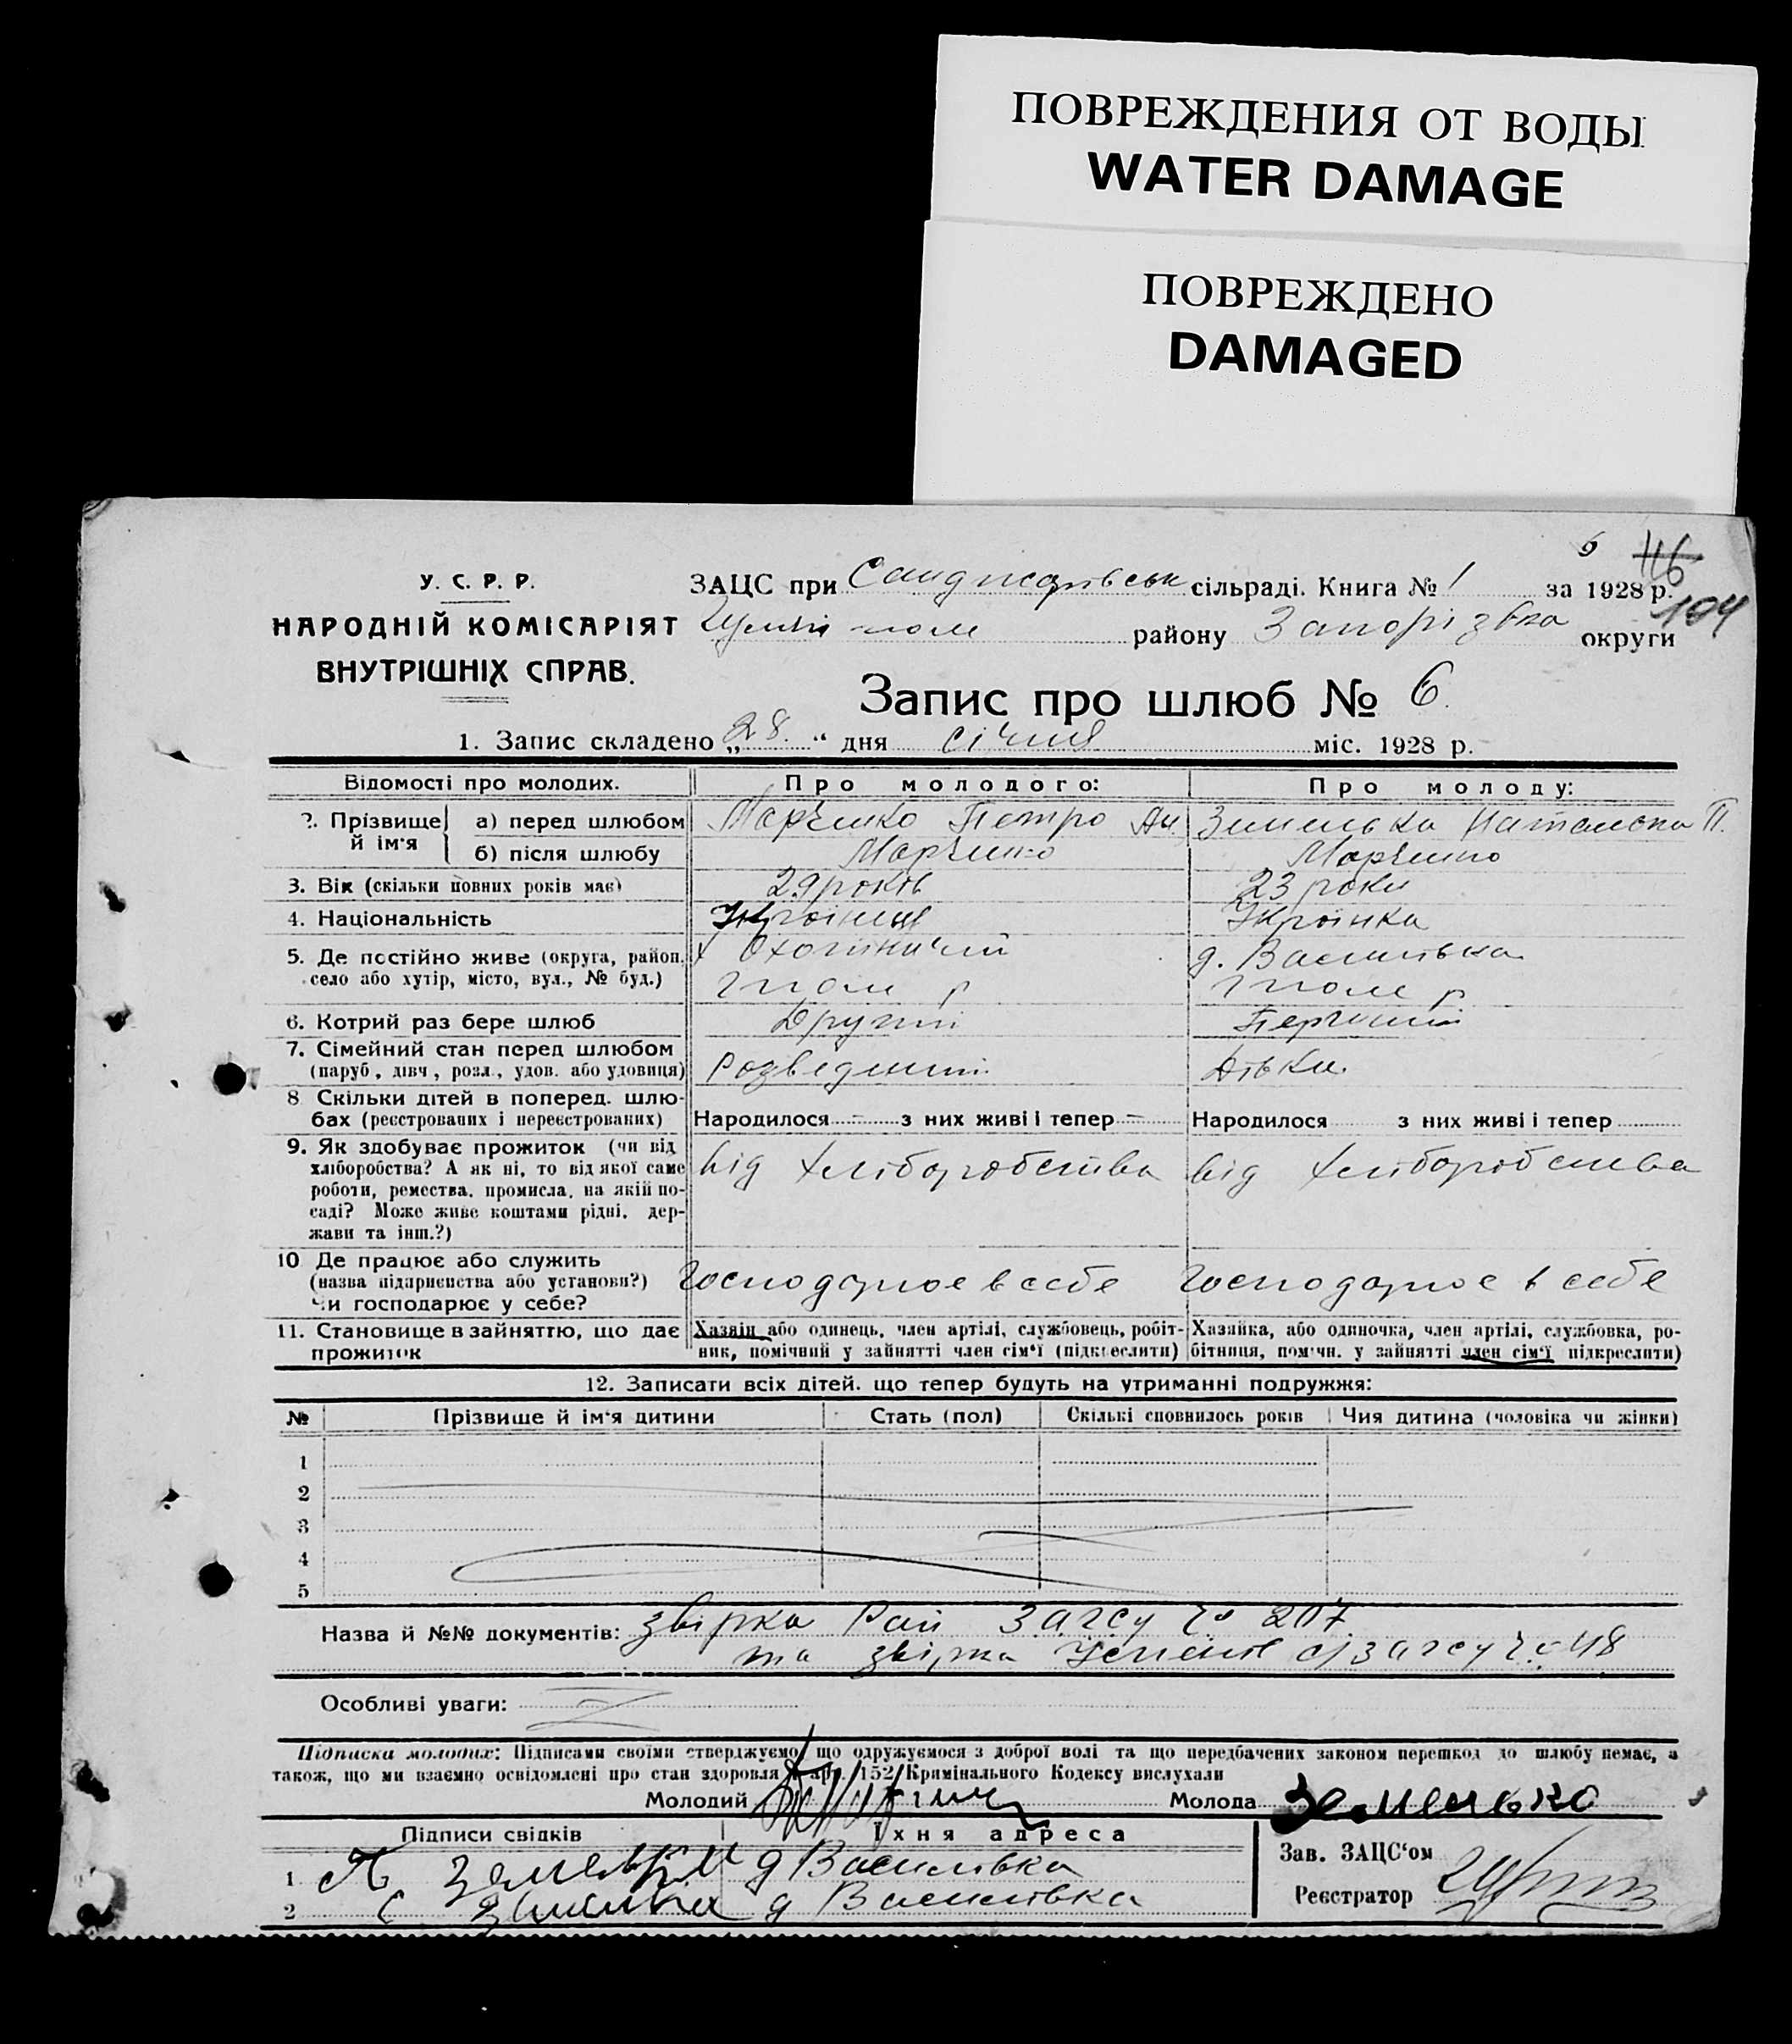 ПОВРЕЖДЕНИЯ ОТ ВОДЫ
WATER DAMAGE
ПОВРЕЖДЕНО
DAMAGED
6 116
104
У. С. Р. Р.
НАРОДНІЙ КОМІСАРІЯТ
ВНУТРІШНІХ СПРАВ.
ЗАЦС при сільраді. Книга № 1 за 1928 р.
району Запорізька округи
Запис про шлюб № 6
1. Запис складено „28“ дня січня міс. 1928 р.
Відомості про молодих. Про молодого: Про молоду:
2. Прізвище й ім'я а) перед шлюбом Марченко Петро Ан. Наталка П.
б) після шлюбу Марченко Марченко
3. Вік (скільки повних років має) 29 років 23 роки
4. Національність Українець Українка
5. Де постійно живе (округа, район, д. Василівка
село або хутір, місто, вул., № буд.) Гполе р Гполе р
6. Котрий раз бере шлюб Другий Перший
7. Сімейний стан перед шлюбом
(паруб., дівч., розл., удов. або удовиця) Розведений Дівка
8 Скільки дітей в поперед. шлю-
бах (реєстрованих і нереєстрованих) Народилося – з них живі і тепер – Народилося з них живі і тепер
9. Як здобуває прожиток (чи від
хліборобства? А як ні, то від якої саме від хліборобства від хліборобства
роботи, ремества, промисла, на якій по-
саді? Може живе коштами рідні, дер-
жави та інш.?)
10 Де працює або служить
(назва підприємства або установи?) Господарює в себе Господарює в себе
Чи господарює у себе?
11. Становище в зайняттю, що дає Хазяїн або одинець, член артілі, службовець, робіт- Хазяйка, або одиночка, член артілі, службовка, ро-
прожиток ник, помічний у зайнятті член сім'ї (підкреслити) бітниця, поміч. у зайнятті член сім'ї підкреслити)
12. Записати всіх дітей, що тепер будуть на утриманні подружжя:
№ Прізвище й ім'я дитини Стать (пол) Скількі сповнилось років Чия дитина (чоловіка чи жінки)
1
2
3
4
5
Назва й №№ документів: звірка Рай Загсу ч. 207
та звірка Успенів с/загсу ч. 48
Особливі уваги:
Підписка молодих: Підписами своїми стверджуємо, що одружуємося з доброї волі та що передбачених законом перешкод до шлюбу немає, а
також, що ми взаємно освідомлені про стан здоровля й арт. 152 Крамінального Кодексу вислухали
Молодий Молода
Підписи свідків Їхня адреса
1 д Василівка
2 д Василівка
Зав. ЗАЦС'ом
Реєстратор